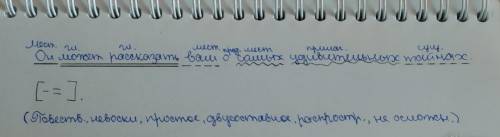 мест. гл. гл. мест. пред. мест. прилаг. сущ.
Он может рассказать вам о самых удивительных тайнах.
[- =].
(Повеств., невоскл., простое, двусоставное, распростр., не осложн.)